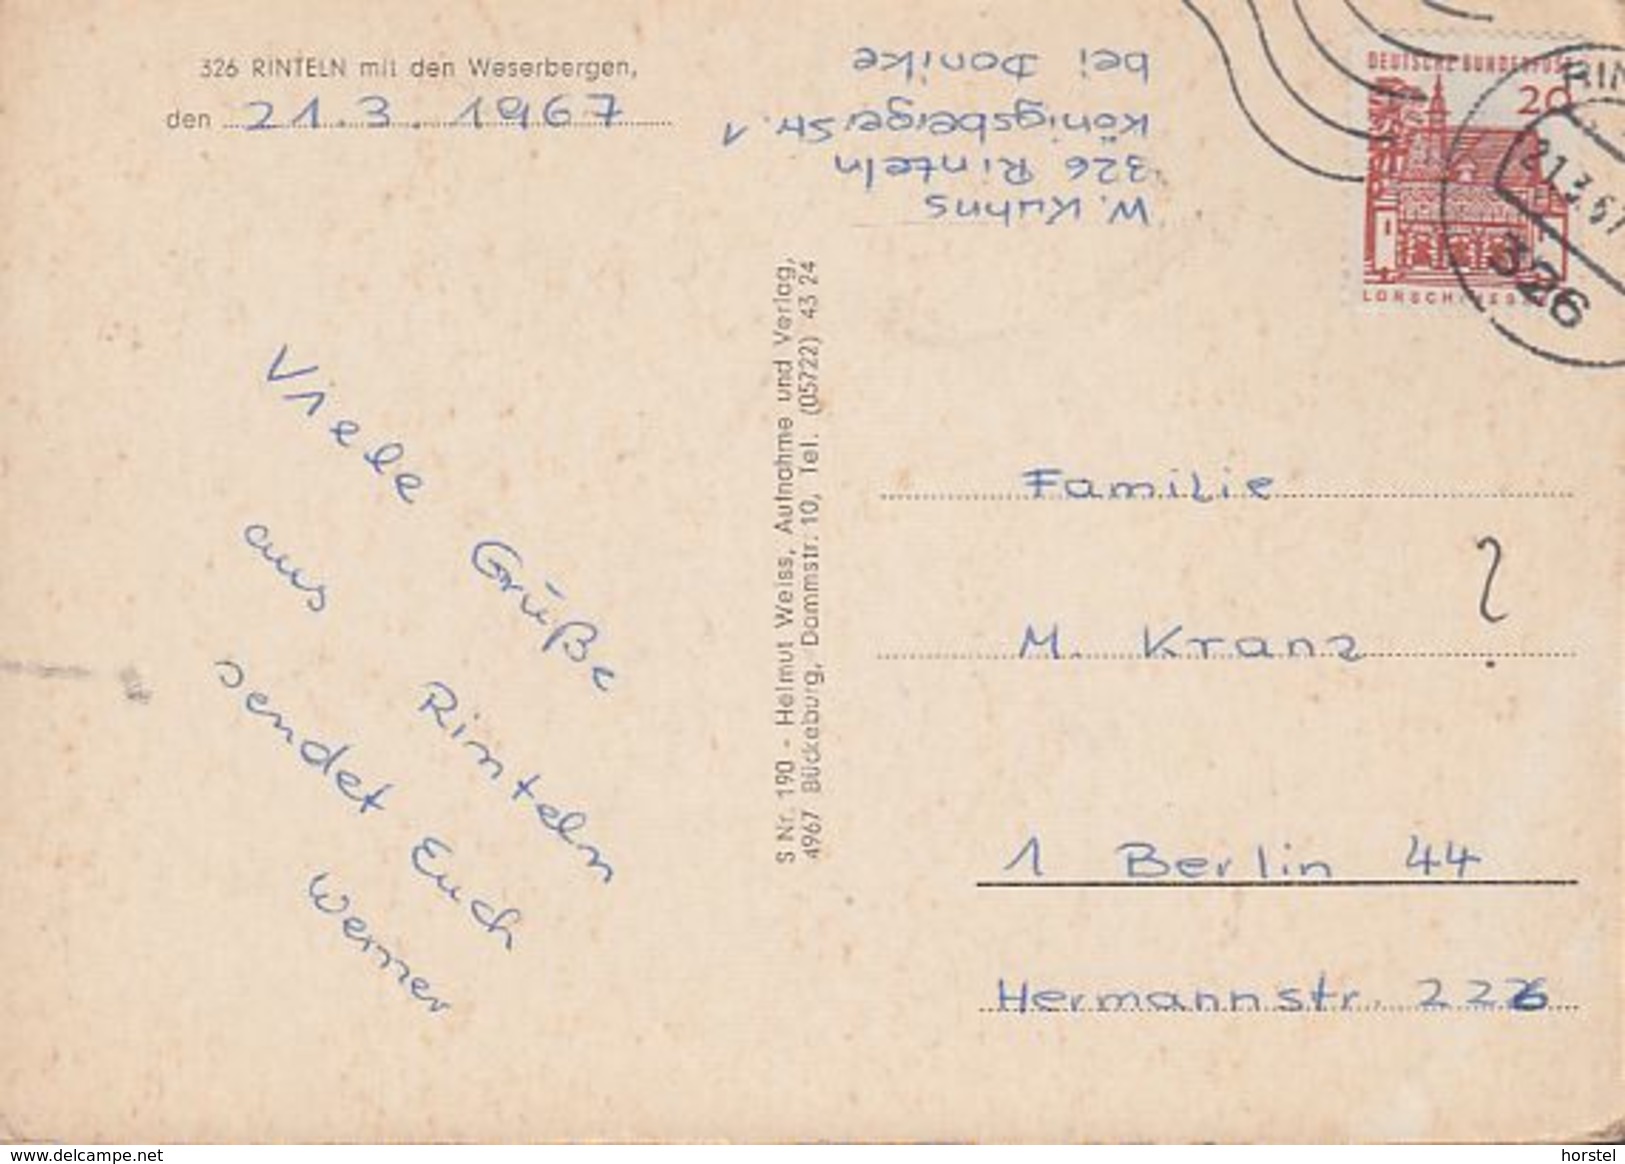 326 RINTELN mit den Weserbergen,
den 21.3.1967
Viele Grüße
aus Rinteln
sendet Euch
Werner
W. Kuhns
326 Rinteln
Königsberger Str. 1
bei Donike
S Nr. 190 - Helmut Weiss, Aufnahme und Verlag,
4967 Bückeburg, Dammstr. 10, Tel. (05722) 43 24
DEUTSCHE BUNDESPOST
20
LORSCH/HESSEN
RIN
21.3.67
326
Familie
M. Kranz ?
1 Berlin 44
Hermannstr. 226
delcampe.net
horstel